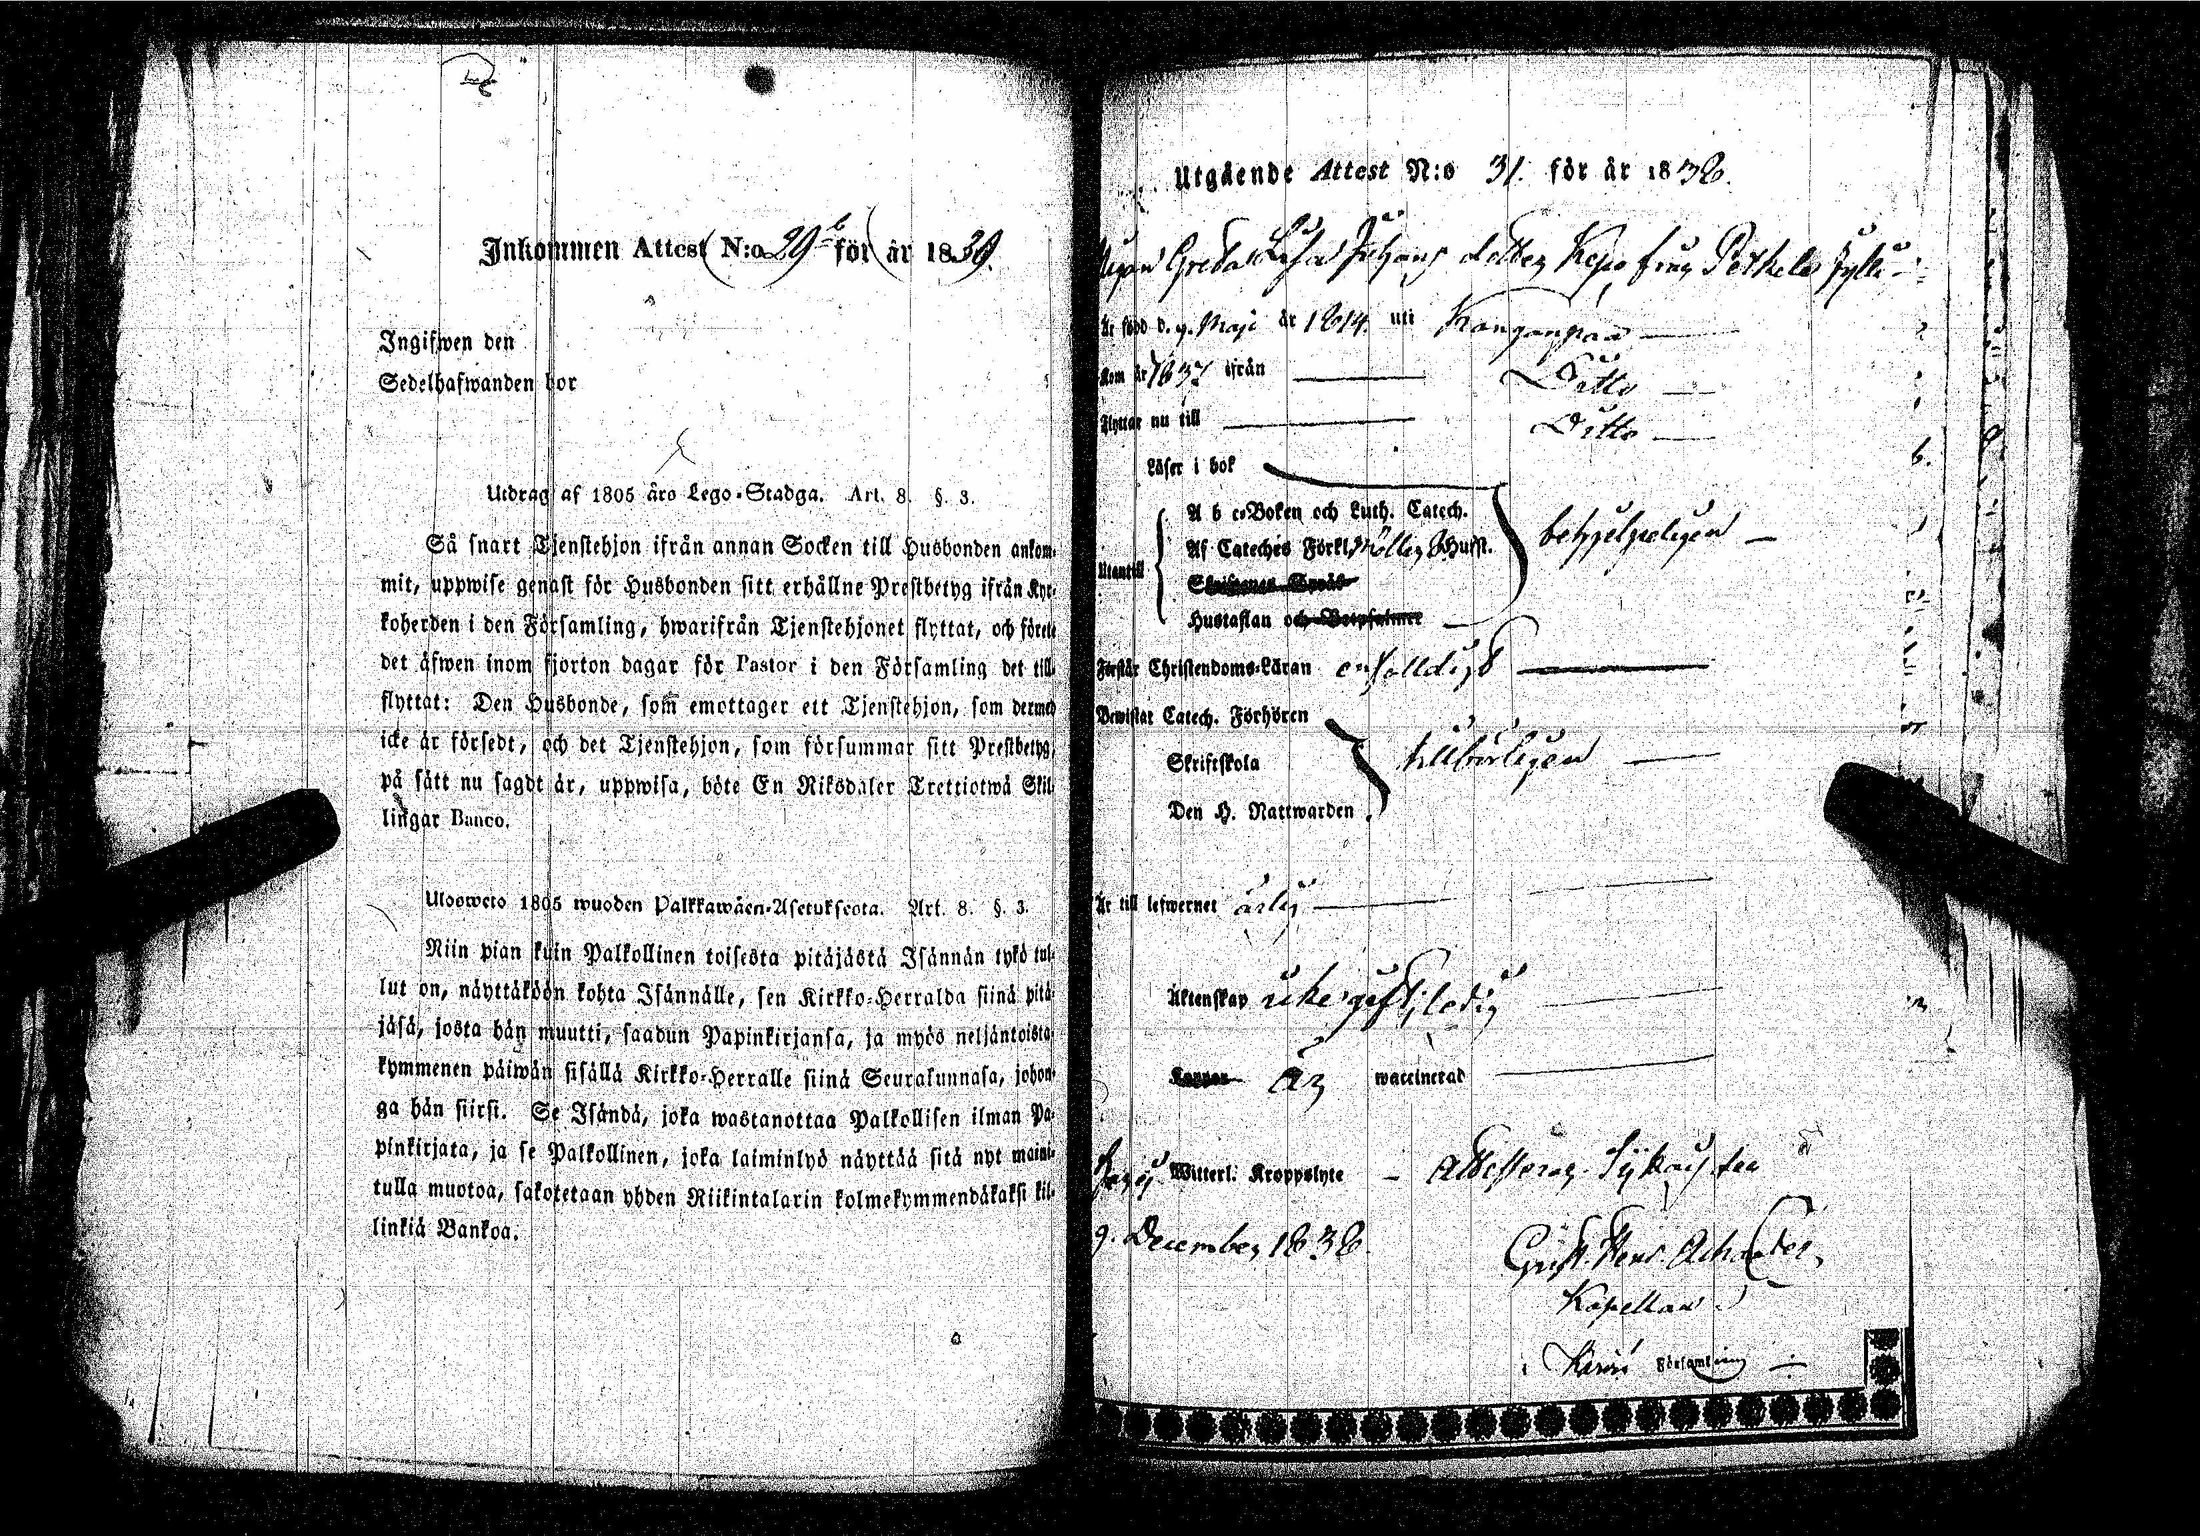 Inkommen Attest N:o 29 b för år 1839.
Ingifwen den
Sedelhafwanden bor
Utdrag af 1805 års Lego-Stadga. Art. 8. §. 3.
Så snart Tjenstehjon ifrån annan Socken till Husbonden ankom-
mit, uppwise genast för Husbonden sitt erhållne Prestbetyg ifrån Kyr-
koherden i den Församling, hwarifrån Tjenstehjonet flyttat, och förete
det äfwen inom fjorton dagar för Pastor i den Församling det till-
flyttat: Den Husbonde, som emottager ett Tjenstehjon, som dermed
icke är försedt, och det Tjenstehjon, som försummar sitt Prestbetyg,
på sätt nu sagdt är, uppwisa, böte En Riksdaler Trettiotwå Skil-
lingar Banco.
Ulosweto 1805 wuoden Palkkawäen-Asetuksesta. Art. 8. §. 3.
Niin pian kuin Palkollinen toisesta pitäjästä Isännän tykö tul-
lut on, näyttäköön kohta Isännälle, sen Kirkko-Herralda siinä pitä-
jäsä, josta hän muutti, saadun Papinkirjansa, ja myös neljäntoista-
kymmenen päiwän sisällä Kirkko-Herralle siinä Seurakunnasa, johon-
ga hän siirsi. Se Isändä, joka wastanottaa Palkollisen ilman Pa-
pinkirjata, ja se Palkollinen, joka laiminlyö näyttää sitä nyt maini-
tulla muotoa, sakotetaan yhden Riikintalarin kolmekymmendäkaksi kil-
linkiä Bankoa.
Utgående Attest N:o 31. för år 1838.
Pigan Greta Lisa Johans dotter från
Är född d. 9. Maji år 1814. uti Kangånpää
Kom år 1837 ifrån Ditto
Flyttar nu till Ditto
Läser i bok
A b c-Boken och Luth. Catech.
Af Cateches Förkl. Hufst.
Utantill
Hustaflan och Botpsalmer
Förstår Christendoms-Läran enfalldigt
Bewistat Catech. Förhören
Skriftskola tillbörligen
Den H. Nattwarden
Är till lefwernet ärlig
Äktenskap icke gift, ledig
Koppor är waccinerad
Witterl. Kroppslyte - attesterar
9. December 1838.
Gust.
Kapellan
Församling